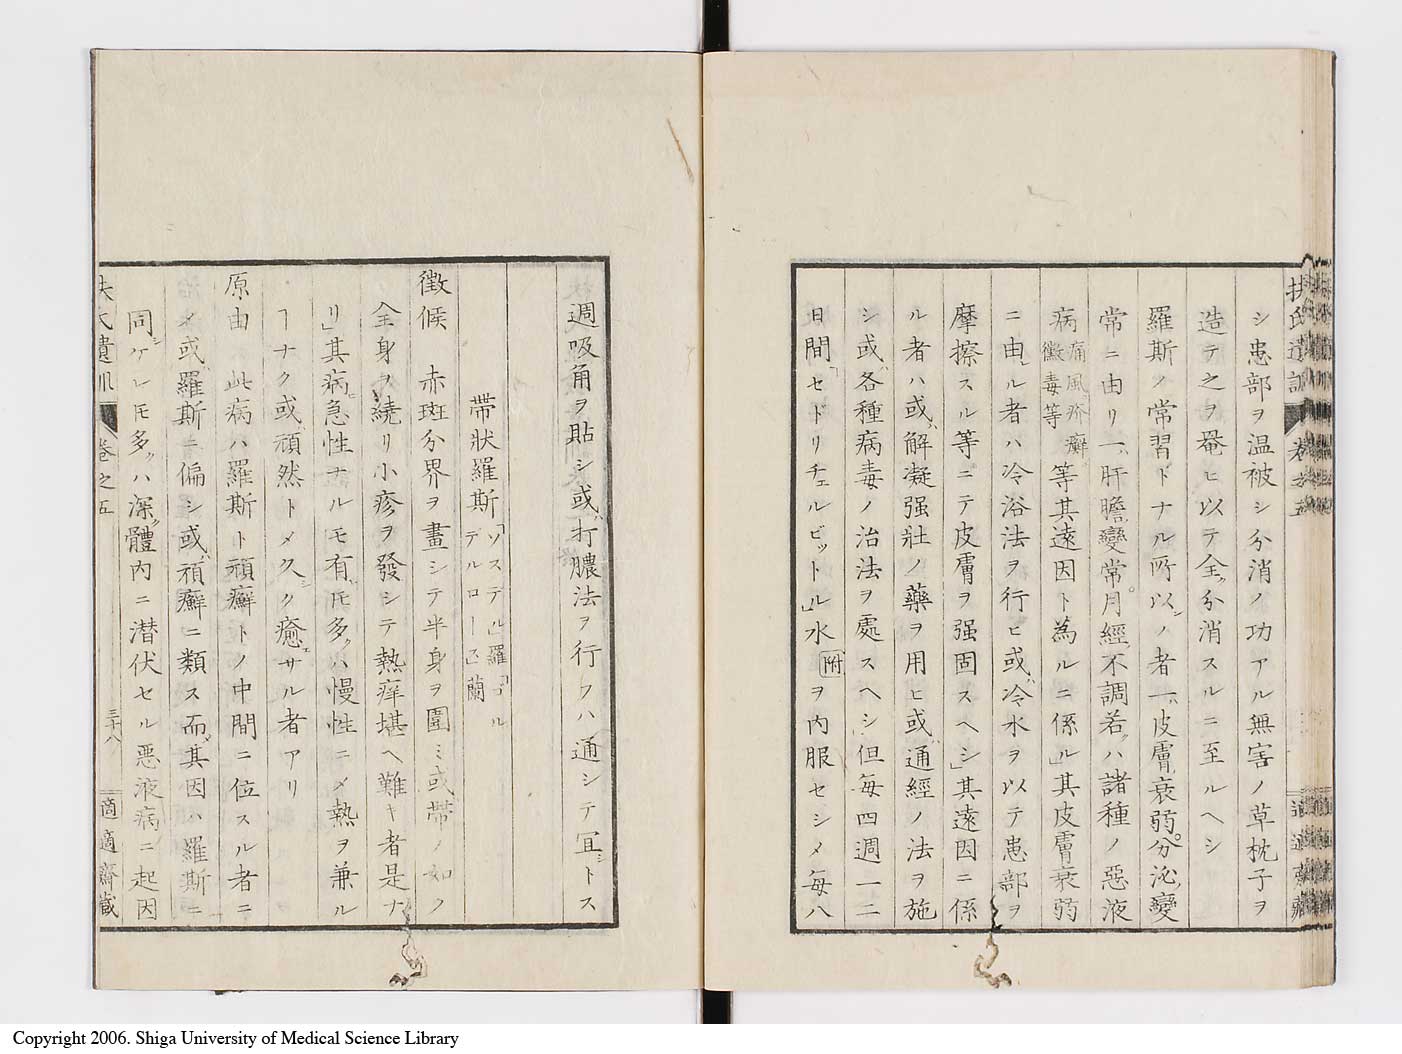 シ患部ヲ温被シ分消ノ功アル無害ノ草枕子ヲ
造テ之ヲ罨ヒ以テ全ク分消スルニ至ルヘシ
羅斯ノ常習ドナル所以ノ者一ハ皮膚衰弱。分泌變
常ニ由リ一ハ肝膽變常。月經不調若クハ諸種ノ惡液
病痛風疥癬黴毒等等其遠因ト為ルニ係ル」其皮膚衰弱
ニ由ル者ハ冷浴法ヲ行ヒ或ハ冷水ヲ以テ患部ヲ
摩擦スル等ニテ皮膚ヲ强固スヘシ」其遠因ニ係
ル者ハ或ハ解凝强壯ノ藥ヲ用ヒ或ハ通經ノ法ヲ施
シ或ハ各種病毒ノ治法ヲ處スヘシ但每四週一二
日間「セドリチェルビットル」水附ヲ內服セシメ每八
扶氏遺訓 卷之五
適適齋藏
週吸角ヲ貼シ或ハ打膿法ヲ行フハ通シテ宜シトス
帶狀羅斯「ゾステル」羅「ゴルデルロース」蘭
徵候 赤斑分界ヲ畫シテ半身ヲ圍ミ或帶ノ如ク
全身ヲ繞リ小疹ヲ發シテ熱痒堪ヘ難キ者是ナ
リ」其病急性ナルモ有レドモ多クハ慢性ニメ熱ヲ兼ル
ヿナク或頑然トメ久シク癒エサル者アリ
原由 此病ハ羅斯ト頑癬トノ中間ニ位スル者ニ
メ或ハ羅斯ニ偏シ或ハ頑癬ニ類ス而其因ハ羅斯ニ
同シケレドモ多クハ深ク體內ニ潜伏セル惡液病ニ起因
扶氏遺訓 卷之五
三十八
適適齋藏
Copyright 2006. Shiga University of Medical Science Library